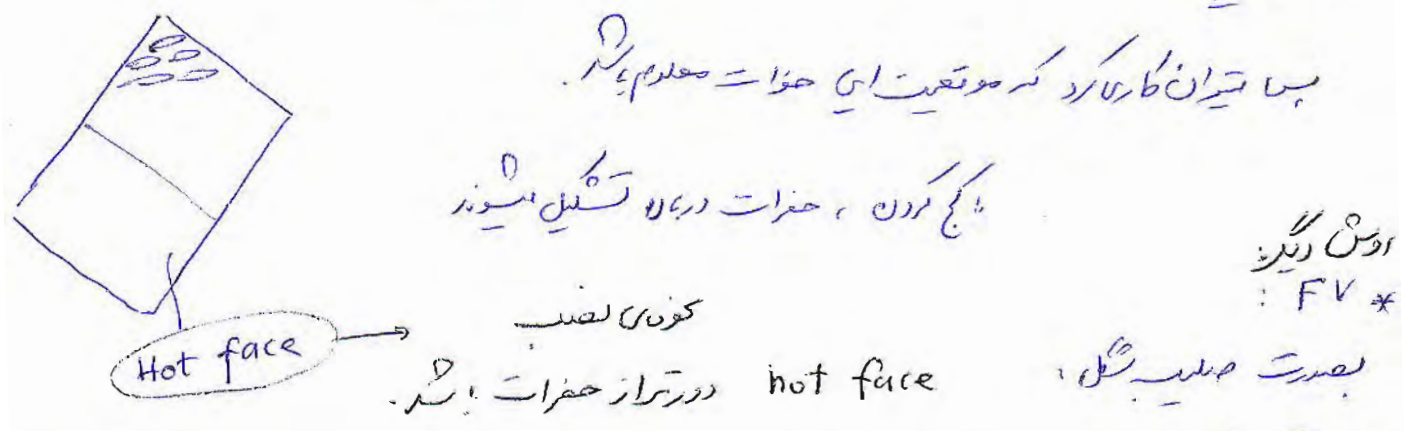 پس میتوان کاری کرد که موقعیت این حفرات معلوم باشد.
با کج کردن، حفرات در بالا تشکیل میشوند
روش دیگر:
* FV :
بصورت صلیب شکل،
نحوه‌ی نصب
hot face دورتر از حفرات باشد.
Hot face